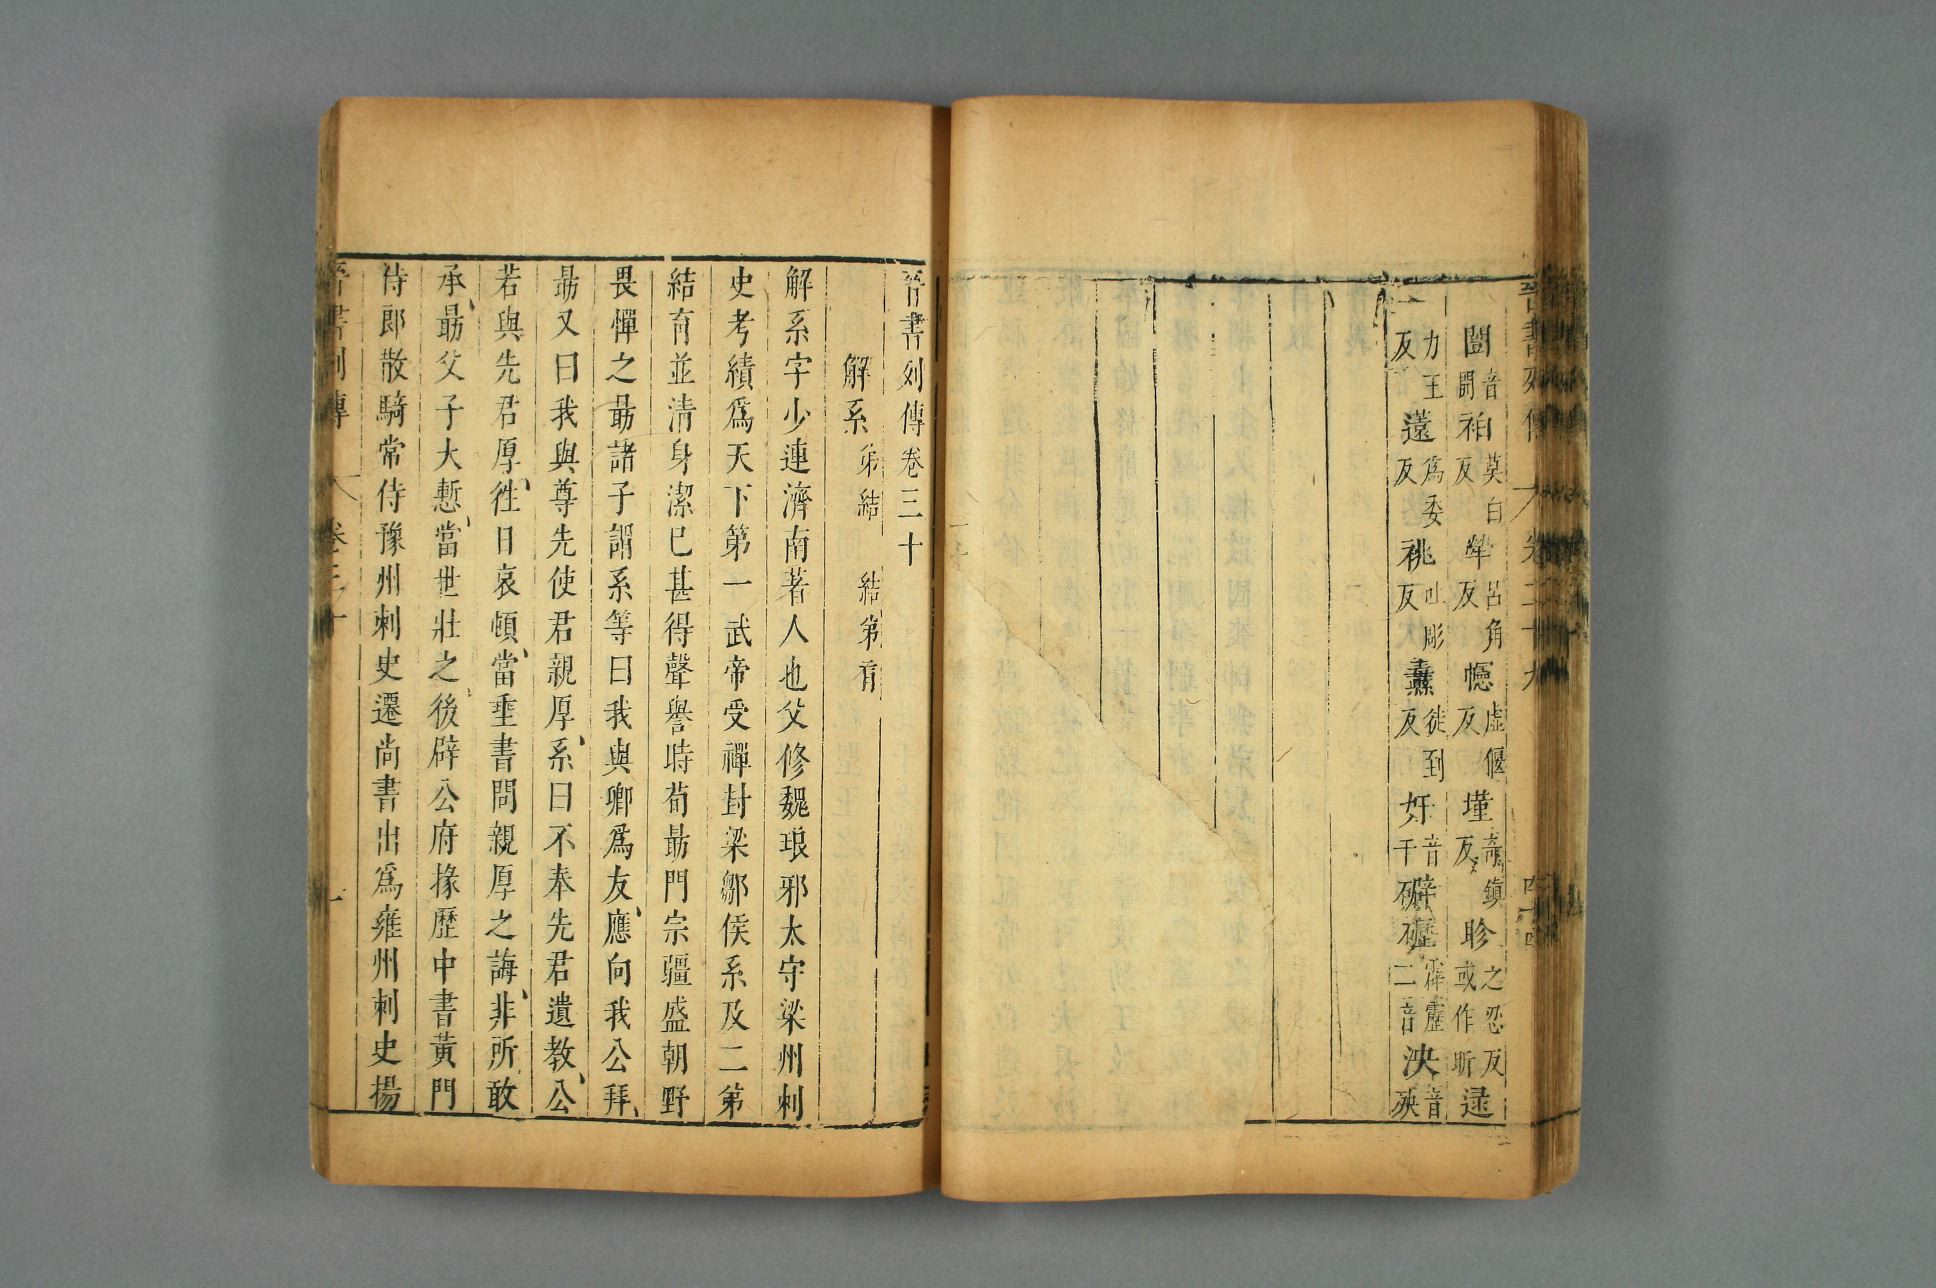 闓音闓袙莫白反犖呂角反幰虛偃反墐奇鎮反眕之忍反或作昕逯
力王反薳爲委反祧吐彫反纛徒到反奸音干礔礰霹靂二音泱音殃
晉書列傳 卷二十九 四十四
晉書列傳卷三十
解系 弟結 結弟育
解系字少連濟南著人也父修魏琅邪太守梁州刺
史考績爲天下第一武帝受禪封梁鄒侯系及二弟
結育並清身潔己甚得聲譽時荀勗門宗彊盛朝野
畏憚之勗諸子謂系等曰我與卿爲友應向我公拜
勗又曰我與尊先使君親厚系曰不奉先君遺教公
若與先君厚往日哀頓當垂書問親厚之誨非所敢
承勗父子大慙當世壯之後辟公府掾歷中書黃門
侍郎散騎常侍豫州刺史遷尚書出爲雍州刺史揚
晉書列傳 卷三十 一